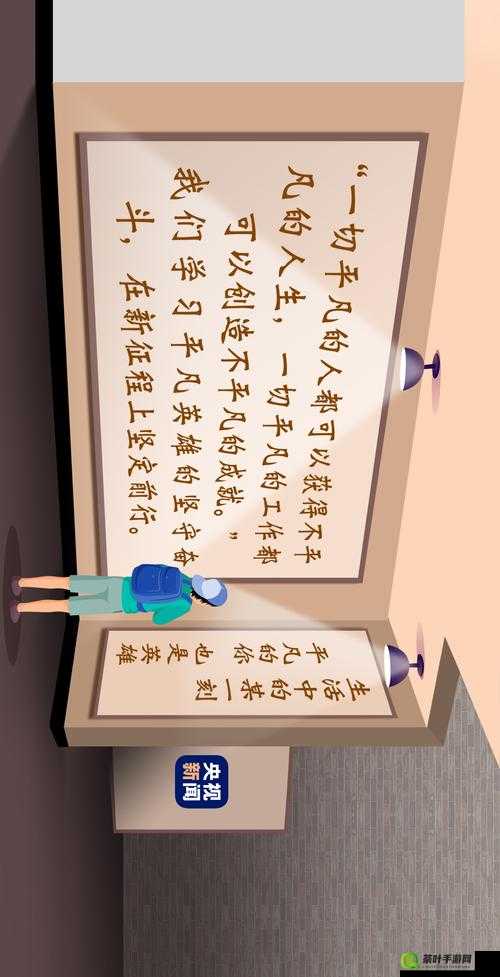 “一切平凡的人都可以获得不平
凡的人生，一切平凡的工作都
可以创造不平凡的成就。”
我们学习平凡英雄的坚守奋
斗，在新征程上坚定前行。
生活中的某一刻
平凡的你也是英雄
央视
新闻
茶叶手游网